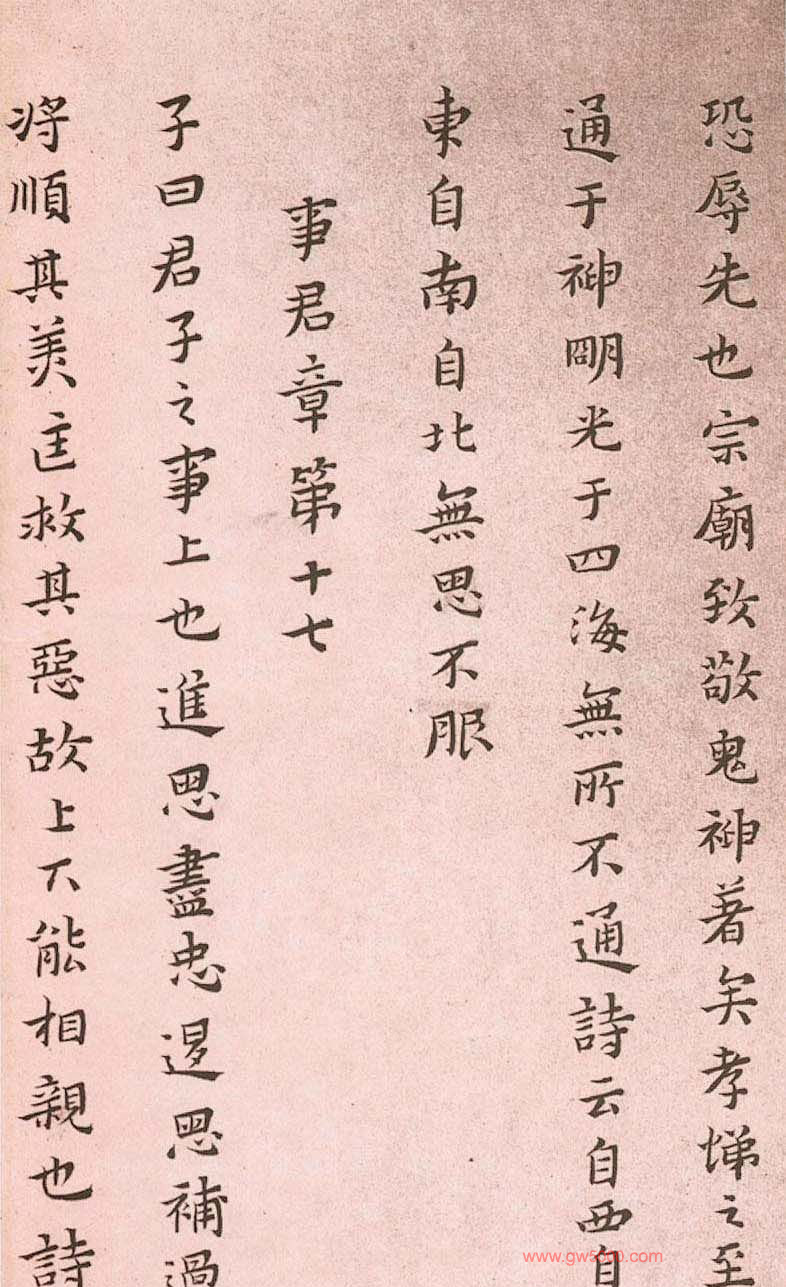 恐辱先也宗廟致敬鬼神著矣孝悌之至
通于神明光于四海無所不通詩云自西自
東自南自北無思不服
事君章第十七
子曰君子之事上也進思盡忠退思補過
将順其美匡救其惡故上下能相親也詩
www.gw5000.com